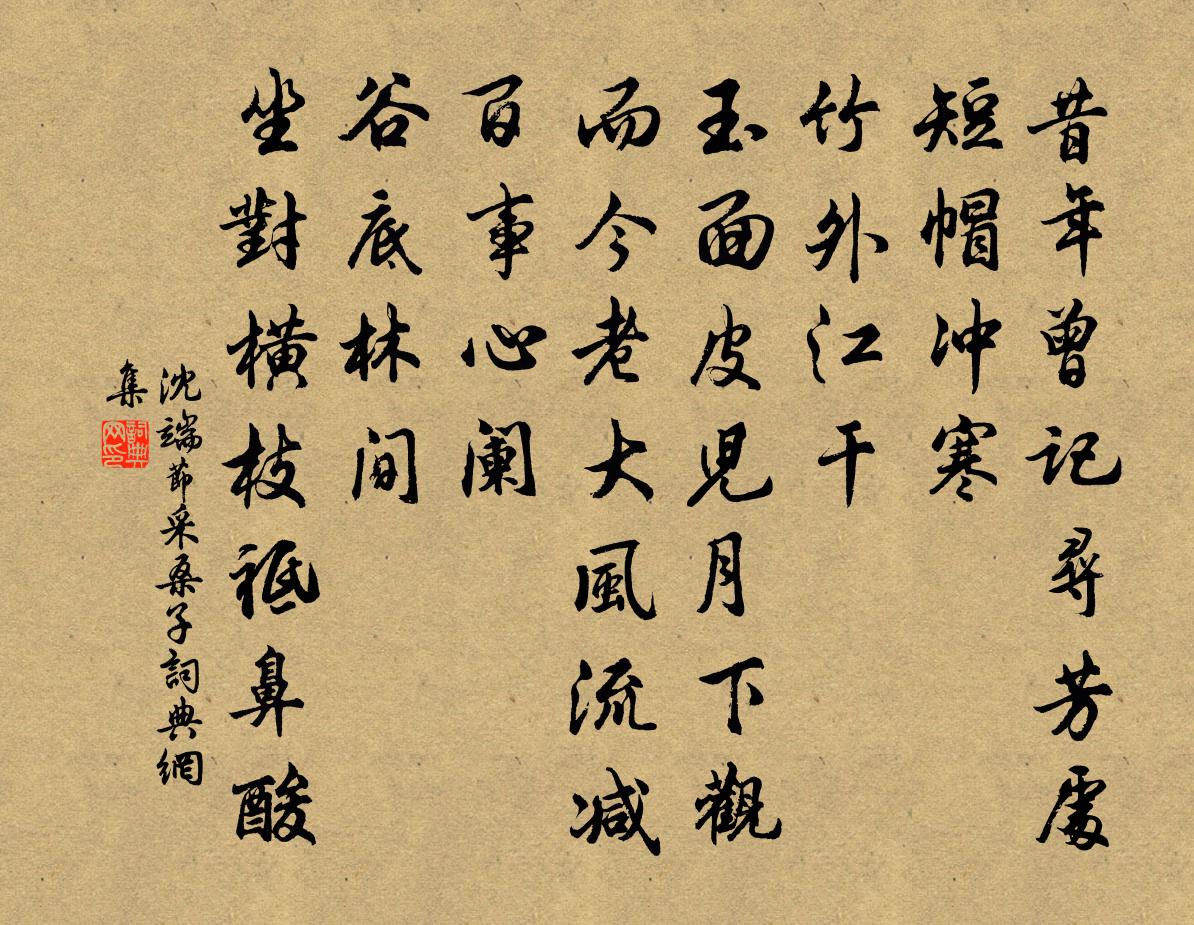 昔年曾記尋芳處
短帽冲寒
竹外江干
玉面皮兒月下觀
而今老大風流减
百事心闌
谷底林間
坐對橫枝祗鼻酸
沈端節采桑子詞典網
集
詞典
网印